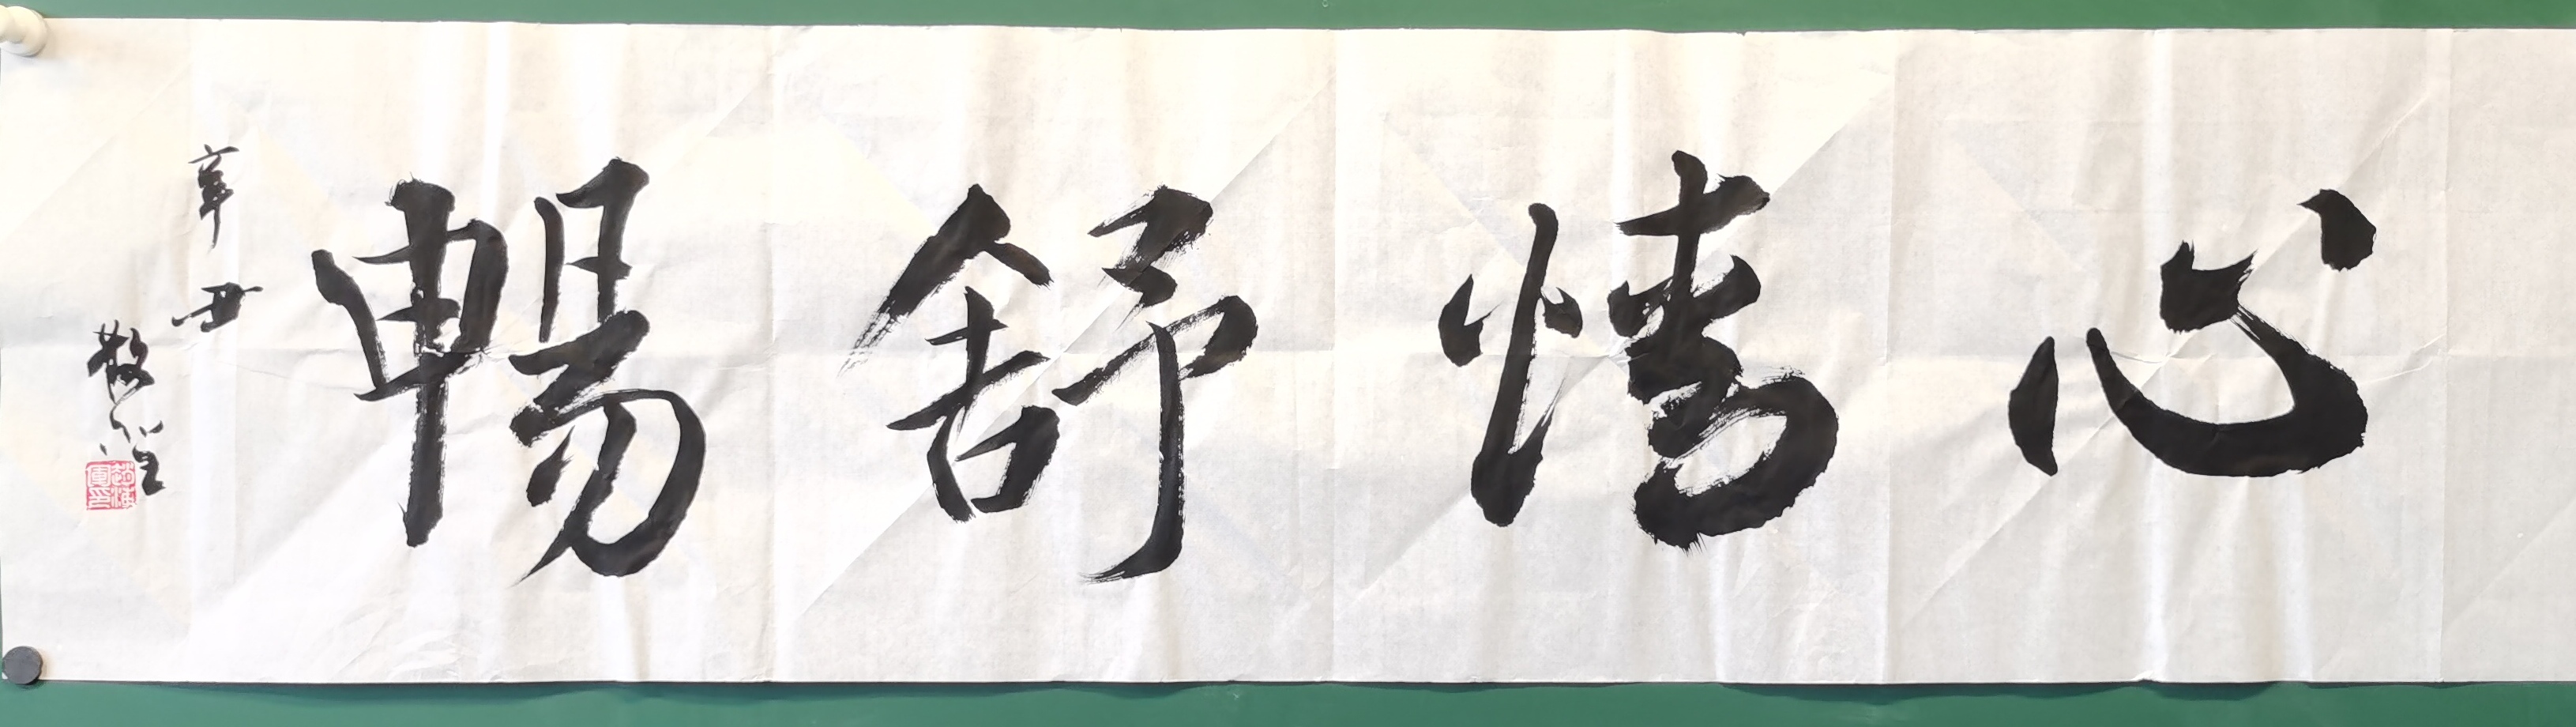 心情舒暢
辛丑
敬堂